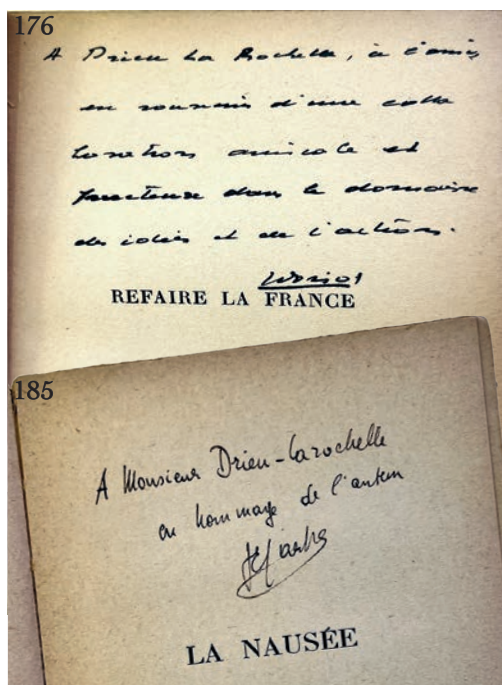 176
A Drieu La Rochelle, à l'ami,
en souvenir d'une colla
boration amicale et
fructueuse dans le domaine
des idées et de l'action.
Doriot
REFAIRE LA FRANCE
185
A Monsieur Drieu-Larochelle
en hommage de l'auteur
JPSartre
LA NAUSÉE